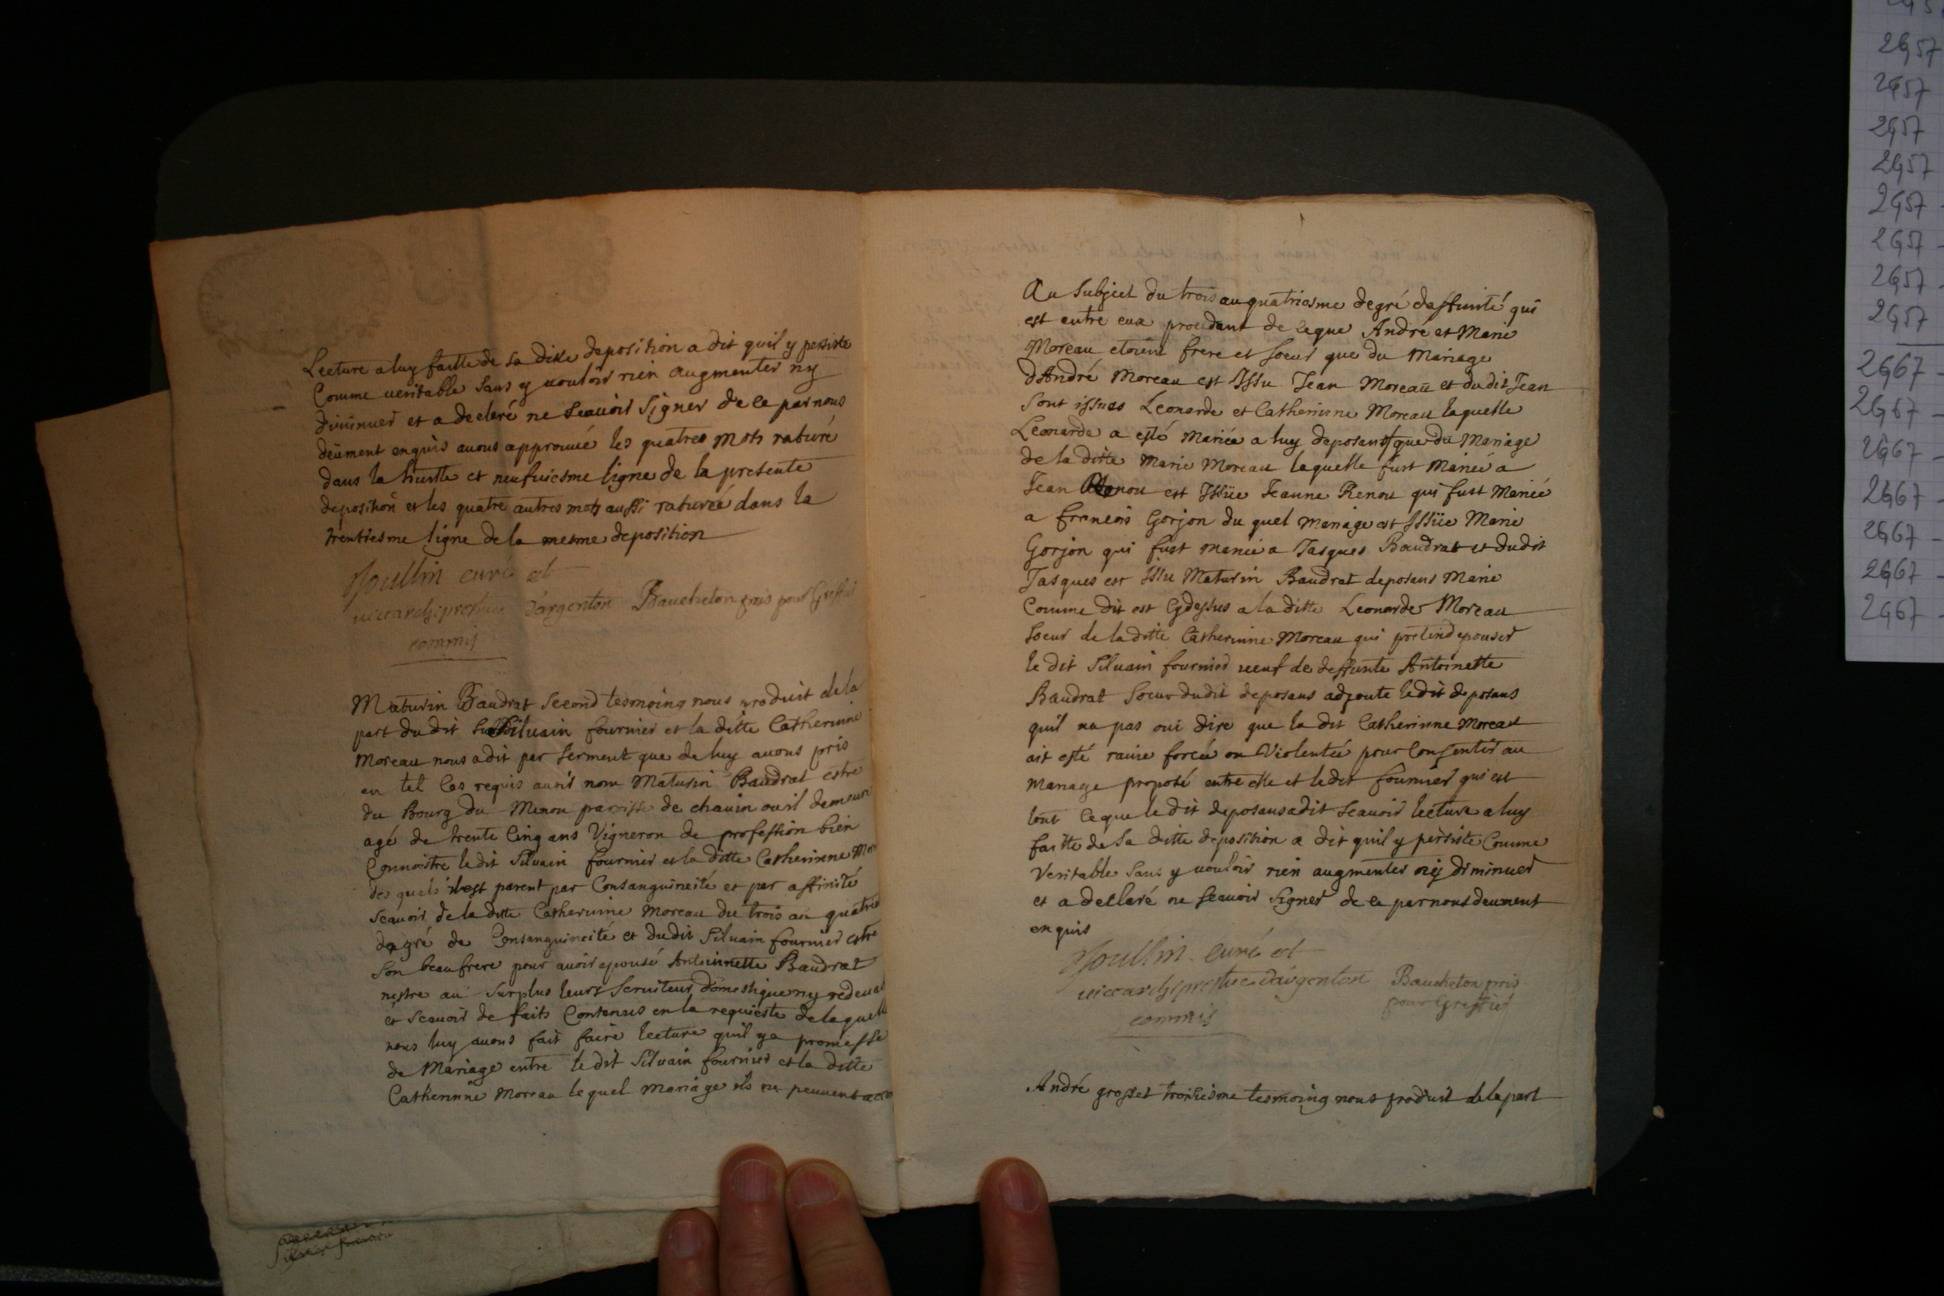 Lecture a luy faitte de sa ditte deposition a dit quil y persiste
Comme veritable sans y vouloir rien augmenter ny
diminuer et a declaré ne scauoir signer de ce par nous
deüment enquis auons approuué les quatres mots raturé
dans la huitte et neufuiesme ligne de la presente
deposition et les quatre autres mots aussi raturéé dans la
trentiesme ligne de la mesme deposition
Joullin curé et
vicearchiprestre dargenton Baucheton pris pour Greffier
commis
Maturin Baudrat second tesmoing nous produit de la
part du dit Siluain fournier et la ditte Catherinne
Moreau nous a dit par serment que de luy auons pris
en tel Cas requis auoir nom Maturin Baudrat estre
du Bourg du Menou parroisse de chauin ou il demeure
agé de trente Cinq ans Vigneron de profession bien
Connoistre le dit Siluain fournier et la ditte Catherinne Mor
des quels il est parent par Consanguineité et par affinité
scauoir de la ditte Catherinne Moreau du trois au quatrie
degré de Consanguineité et du dit Siluain fournier estre
son beaufrere pour auoir epousé Antoinnette Baudrat
nestre au surplus leurs seruiteur domestique ny redeua
et scauoir de faits Contenus en la requieste de laquelle
nous luy auons fait faire lecture quil y a promesse
de Mariage entre le dit Siluain fournier et la ditte
Catherinne Moreau lequel mariage ils ne peuuent
Au subject du trois au quatriesme degré daffinité qui
est entre eux prouenant de ceque André et Marie
Moreau etoient frere et soeur que du Mariage
d'André Moreau est Issu Jean Moreau et du dit Jean
sont issues Leonarde et Catherinne Moreau laquelle
Leonarde a esté Mariéé a luy deposant que du Mariage
de la ditte Marie Moreau laquelle fust Mariéé a
Jean Renou est Issüe Jeanne Renou qui fust Mariéé
a francois Gorjon du quel Mariage est Issüe Marie
Gorjon qui fust Mariéé a Jasques Baudrat et dudit
Jasques est Issu Maturin Baudrat deposant Marié
Comme dit est Cydessus a la ditte Leonarde Moreau
soeur de la ditte Catherinne Moreau qui pretend epouser
le dit Siluain fournier veuf de deffunte Antoinette
Baudrat soeur dudit deposans adjoute ledit deposans
quil na pas oui dire que la dit Catherinne Moreau
ait esté rauie forcéé ou Violentéé pour Consentir au
Mariage proposé entre elle et ledit fournier qui est
tout Ce que le dit deposans a dit scauoir lecture a luy
faitte de sa ditte deposition a dit quil y persiste Comme
Veritable sans y vouloir rien augmenter ny diminuer
et a declaré ne scauoir signer de ce par nous deument
enquis
Joullin curé et
vicearchiprestre dargenton Baucheton pris
pour Greffier
commis
André grosset troisiesme tesmoing nous produit de la part
2G57
2G57
2G57
2G57
2G57 -
2G57 -
2G57 -
2G57
2G67 -
2G67 -
2G67 -
2G67 -
2G67 -
2G67 -
2G67 -